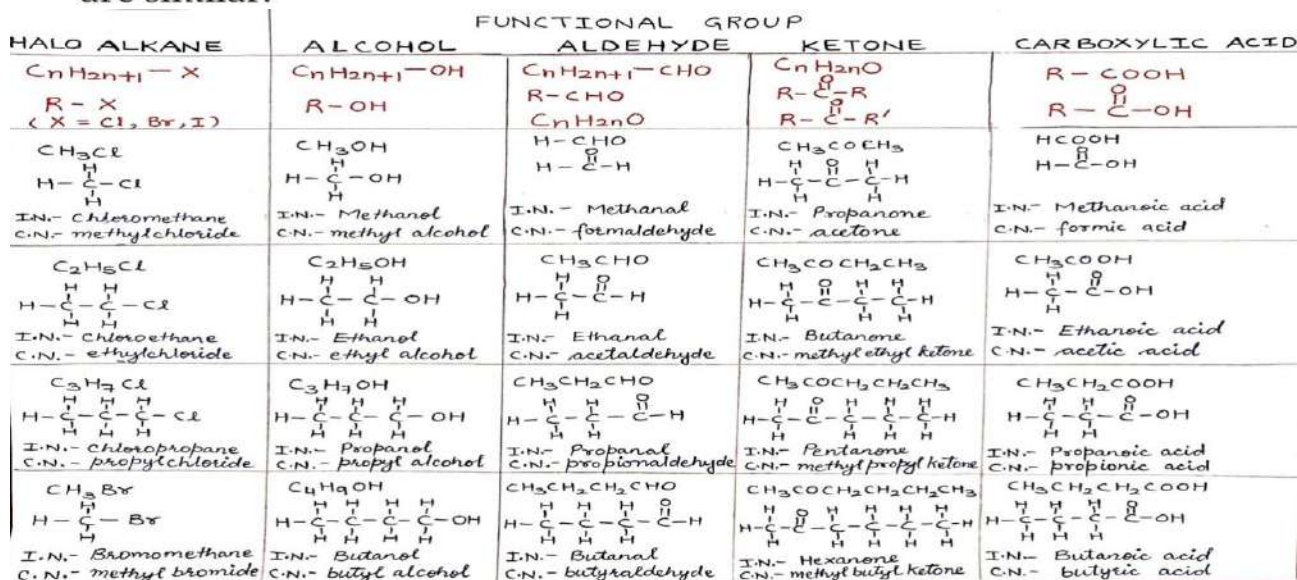 are similar.
FUNCTIONAL GROUP
HALO ALKANE
ALCOHOL
ALDEHYDE
KETONE
CARBOXYLIC ACID
CnH2n+1-X
R-X
(X = Cl, Br, I)
CnH2n+1-OH
R-OH
CnH2n+1-CHO
R-CHO
CnH2nO
CnH2nO
O
R-C-R
O
R-C-R'
R-COOH
O
R-C-OH
CH3Cl
H
H-C-Cl
H
I.N.- Chloromethane
C.N.- methylchloride
CH3OH
H
H-C-OH
H
I.N.- Methanol
C.N.- methyl alcohol
H-CHO
O
H-C-H
I.N.- Methanal
C.N.- formaldehyde
CH3COCH3
H O H
H-C-C-C-H
H H
I.N.- Propanone
C.N.- acetone
HCOOH
O
H-C-OH
I.N.- Methanoic acid
C.N.- formic acid
C2H5Cl
H H
H-C-C-Cl
H H
I.N.- Chloroethane
C.N.- ethylchloride
C2H5OH
H H
H-C-C-OH
H H
I.N.- Ethanol
C.N.- ethyl alcohol
CH3CHO
H O
H-C-C-H
H
I.N.- Ethanal
C.N.- acetaldehyde
CH3COCH2CH3
H O H H
H-C-C-C-C-H
H H H
I.N.- Butanone
C.N.- methyl ethyl ketone
CH3COOH
H O
H-C-C-OH
H
I.N.- Ethanoic acid
C.N.- acetic acid
C3H7Cl
H H H
H-C-C-C-Cl
H H H
I.N.- Chloropropane
C.N.- propylchloride
C3H7OH
H H H
H-C-C-C-OH
H H H
I.N.- Propanol
C.N.- propyl alcohol
CH3CH2CHO
H H O
H-C-C-C-H
H H
I.N.- Propanal
C.N.- propionaldehyde
CH3COCH2CH2CH3
H O H H H
H-C-C-C-C-C-H
H H H H
I.N.- Pentanone
C.N.- methyl propyl ketone
CH3CH2COOH
H H O
H-C-C-C-OH
H H
I.N.- Propanoic acid
C.N.- propionic acid
CH3Br
H
H-C-Br
H
I.N.- Bromomethane
C.N.- methyl bromide
C4H9OH
H H H H
H-C-C-C-C-OH
H H H H
I.N.- Butanol
C.N.- butyl alcohol
CH3CH2CH2CHO
H H H O
H-C-C-C-C-H
H H H
I.N.- Butanal
C.N.- butyraldehyde
CH3COCH2CH2CH2CH3
H O H H H H
H-C-C-C-C-C-C-H
H H H H H
I.N.- Hexanone
C.N.- methyl butyl ketone
CH3CH2CH2COOH
H H H O
H-C-C-C-C-OH
H H H
I.N.- Butanoic acid
C.N.- butyric acid